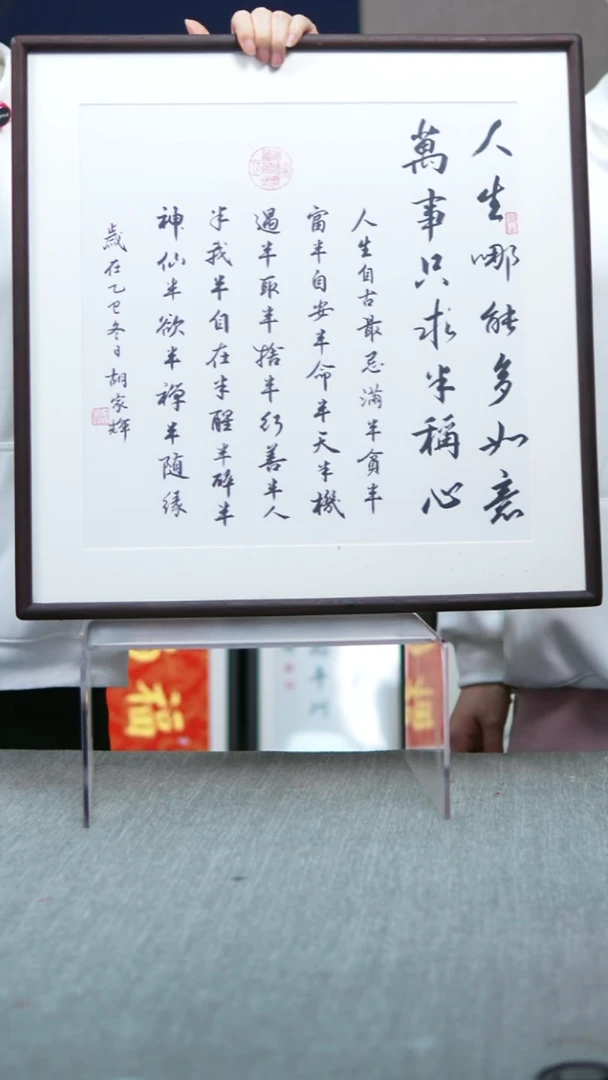 人生哪能多如意
萬事只求半稱心
人生自古最忌滿半貪半
富半自安半命半天半機
遇半取半捨半行善半人
半我半自在半醒半醉半
神仙半欲半禪半随缘
歲在乙巳冬日胡家輝
福